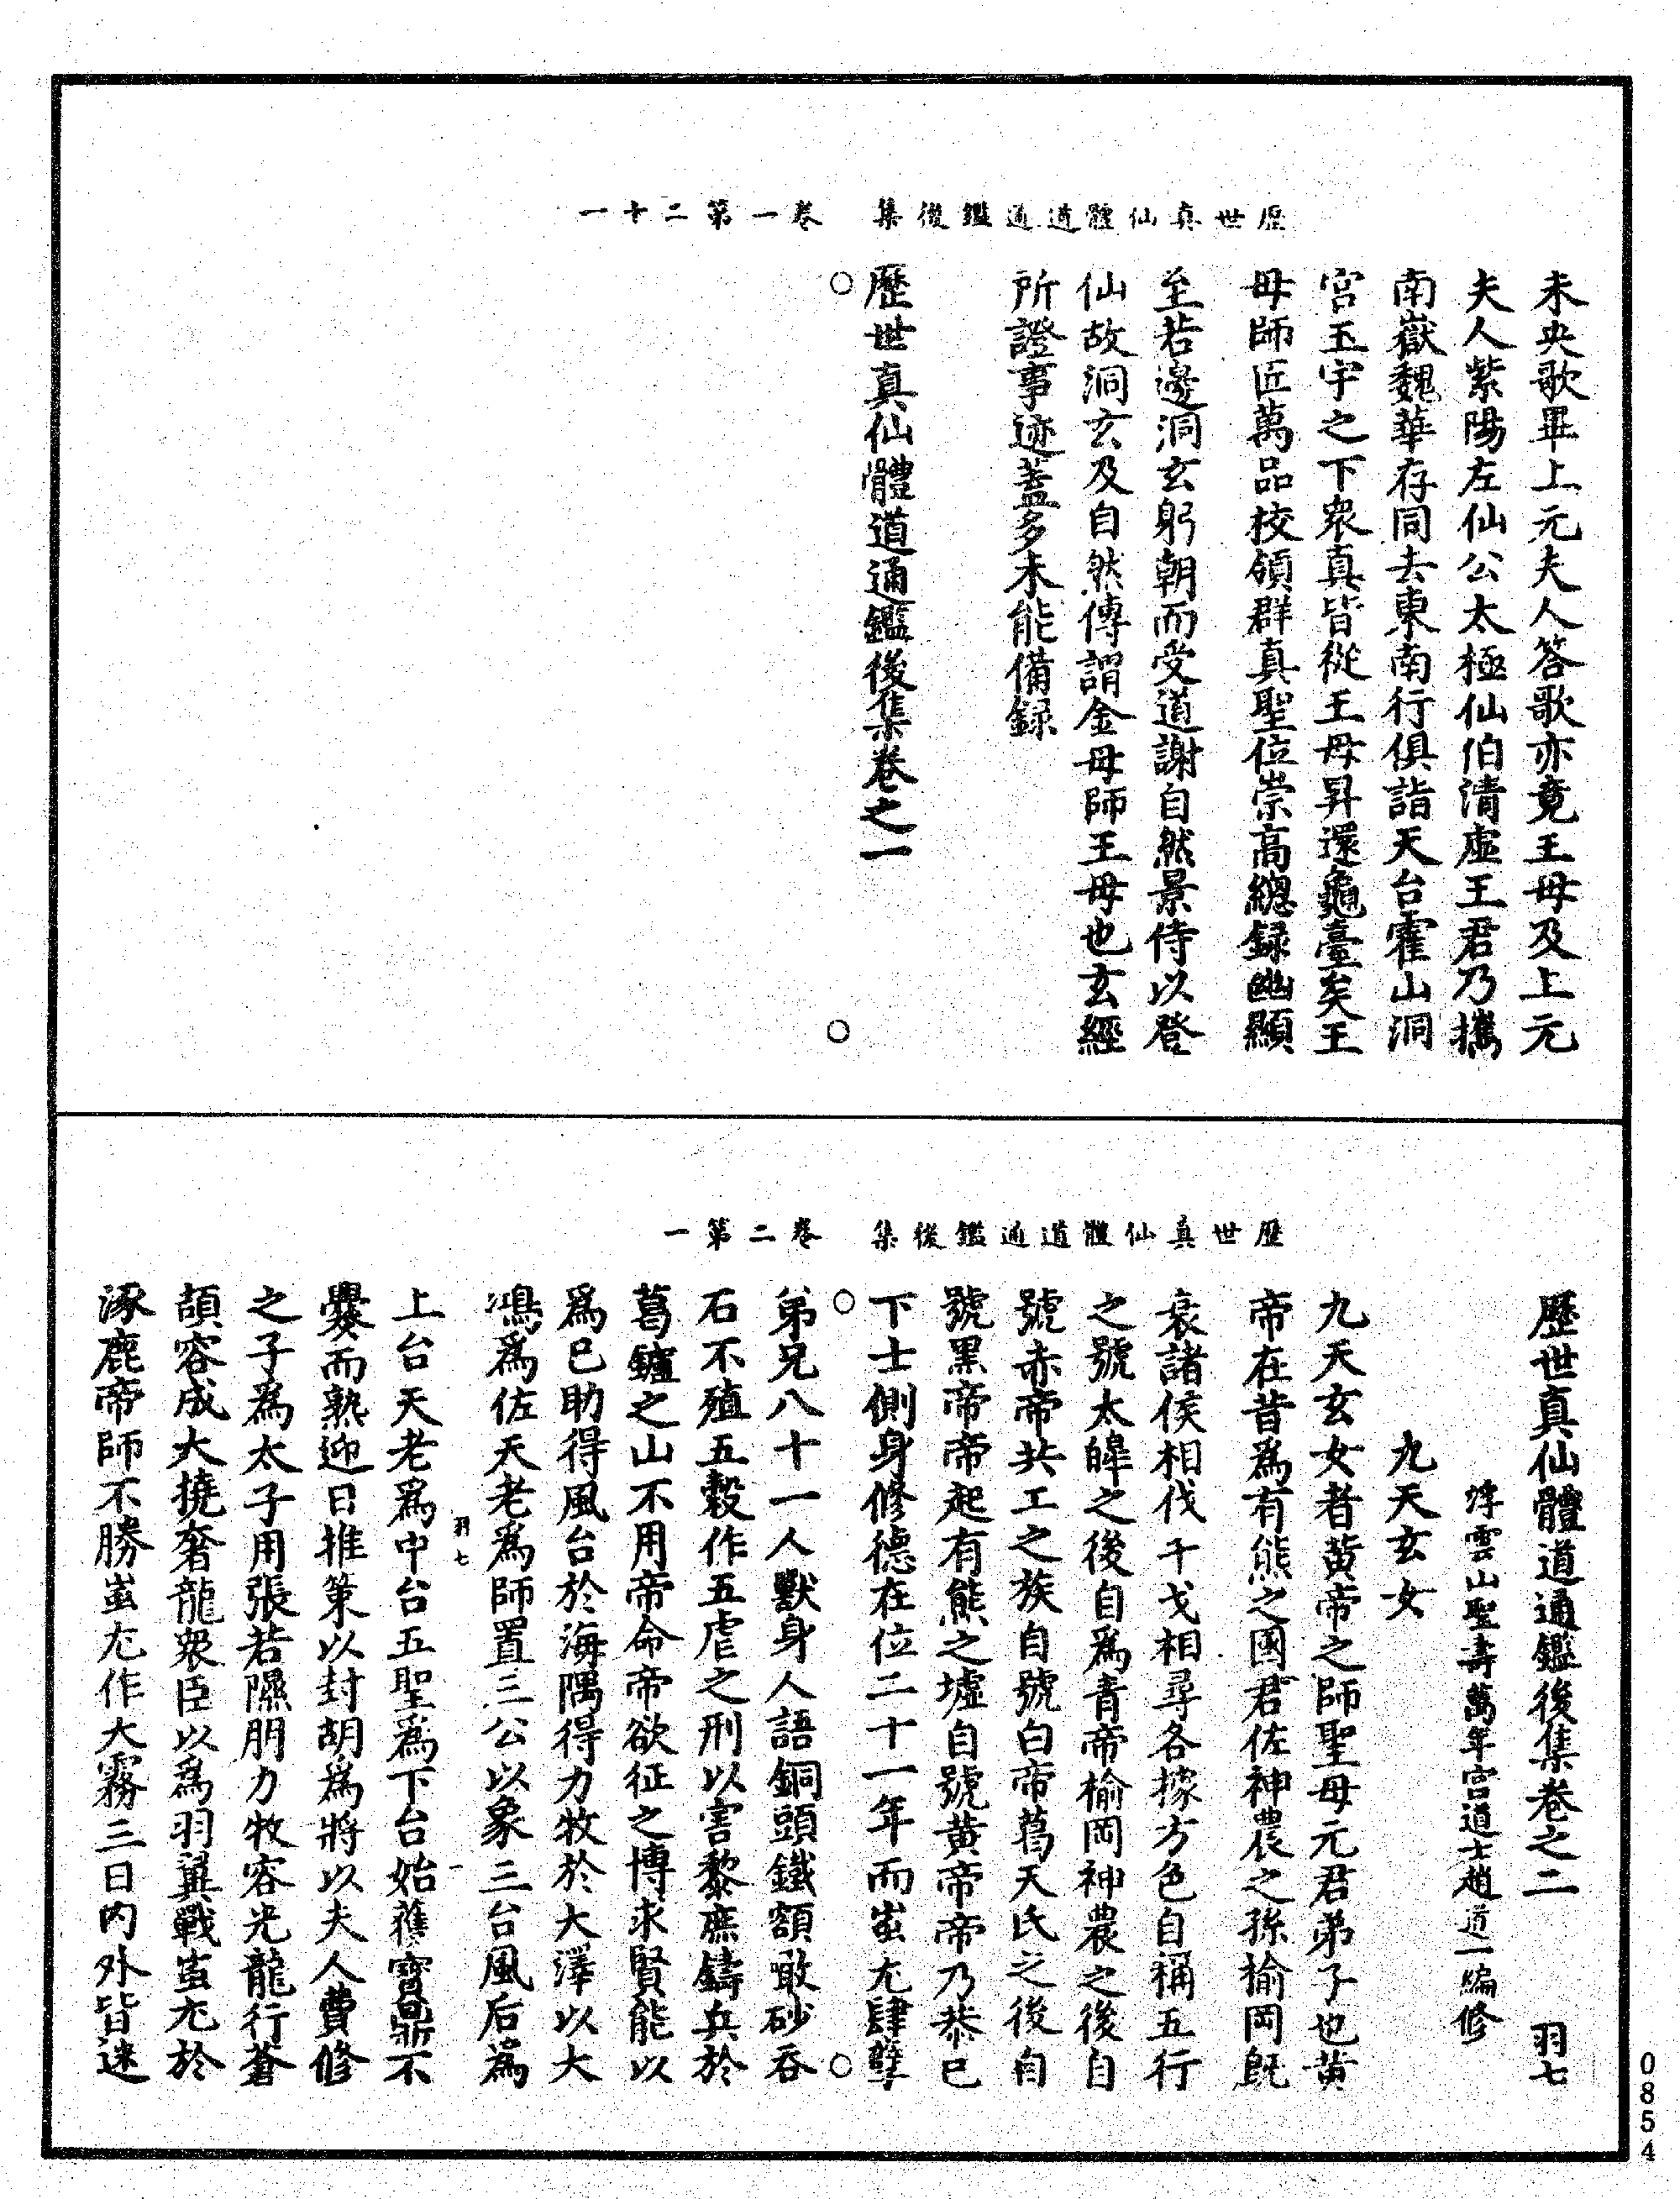 歷世真仙體道通鑑後集 卷一第二十一
未央歌畢上元夫人答歌亦竟王母及上元
夫人紫陽左仙公太極仙伯清虛王君乃攜
南嶽魏華存同去東南行俱詣天台霍山洞
宮玉宇之下眾真皆從王母昇還龜臺矣王
母師匠萬品校領群真聖位崇高總録幽顯
至若邊洞玄躬朝而受道謝自然景侍以登
仙故洞玄及自然傳謂金母師王母也玄經
所證事迹蓋多未能備録
歷世真仙體道通鑑後集卷之一
歷世真仙體道通鑑後集 卷二第一
歷世真仙體道通鑑後集卷之二 羽七
浮雲山聖壽萬年宮道士趙道一編修
九天玄女
九天玄女者黃帝之師聖母元君弟子也黃
帝在昔為有熊之國君佐神農之孫榆岡既
衰諸侯相伐干戈相尋各據方色自稱五行
之號太皡之後自為青帝榆岡神農之後自
號赤帝共工之族自號白帝葛天氏之後自
號黑帝帝起有熊之墟自號黃帝帝乃恭己
下士側身修德在位二十一年而蚩尤肆孽
弟兄八十一人獸身人語銅頭鐵額噉砂吞
石不殖五穀作五虐之刑以害黎庶鑄兵於
葛鑪之山不用帝命帝欲征之博求賢能以
爲己助得風台於海隅得力牧於大澤以大
鴻爲佐天老爲師置三公以象三台風后爲
羽七
上台天老爲中台五聖爲下台始獲寶鼎不
爨而熟迎日推策以封胡爲將以夫人費修
之子爲太子用張若隰朋力牧容光龍行蒼
頡容成大撓奢龍眾臣以爲羽翼戰蚩尤於
涿鹿帝師不勝蚩尤作大霧三日內外皆迷
0854